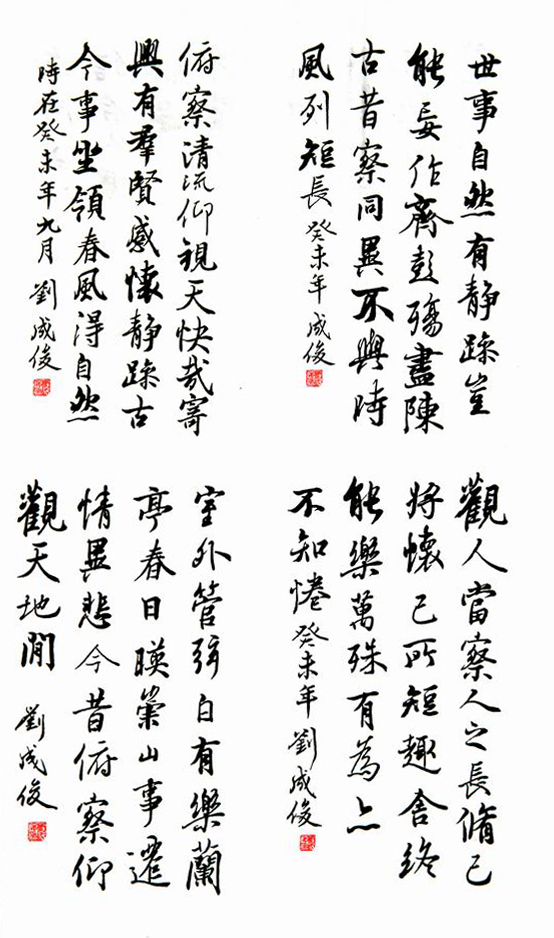 世事自然有静躁豈
能妄作齊彭殤盡陳
古昔察同異不與時
風列短長 癸未年 成俊
俯察清流仰視天快哉寄
興有羣賢感懷静躁古
今事坐領春風得自然
時在癸未年九月 劉成俊
觀人當察人之長脩己
將懷己所短趣舍終
能樂萬殊有為亦
不知惓 癸未年 劉成俊
室外管弦自有樂蘭
亭春日暎崇山事遷
情異悲今昔俯察仰
觀天地間 劉成俊